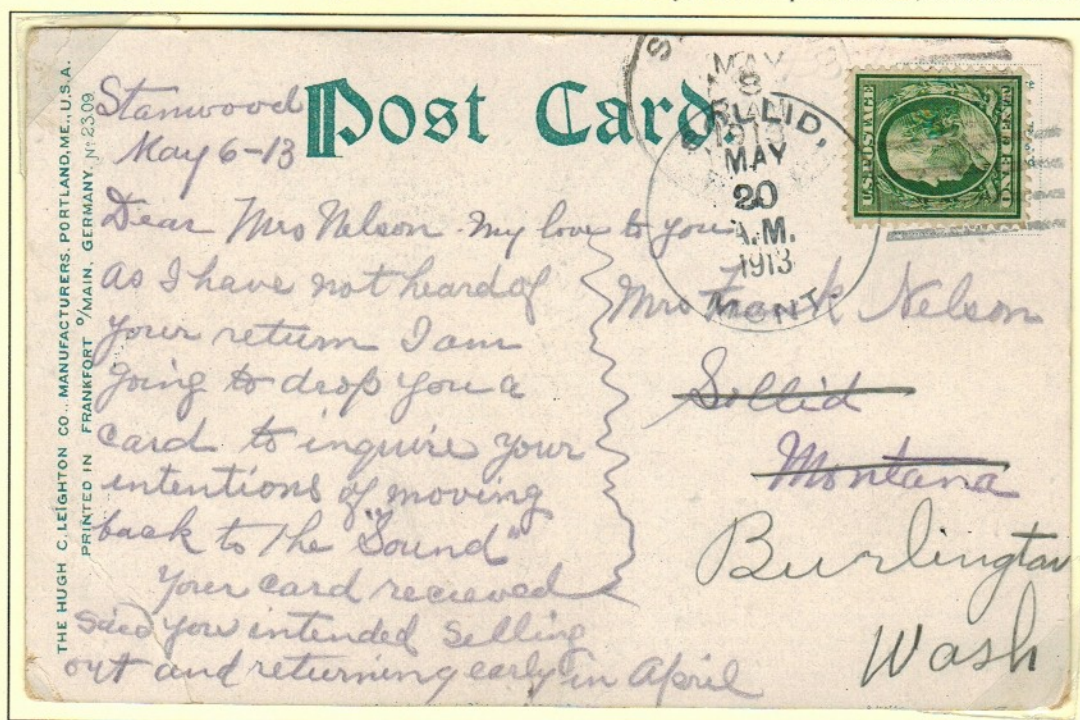 THE HUGH C. LEIGHTON CO., MANUFACTURERS, PORTLAND, ME., U.S.A.
PRINTED IN FRANKFORT o/MAIN, GERMANY. No 2309
Post Card
Stanwood
May 6-13
Dear Mrs Nelson my love to you
as I have not heard of
your return I am
going to drop you a
card to inquire your
intentions of moving
back to the "Sound"
Your card recieved
said you intended selling
out and returning early in April
MAY
8
1913
SOLLID,
MAY
20
A.M.
1913
MONT.
U.S. POSTAGE
ONE CENT
Mrs Frank Nelson
Sollid
Montana
Burlington
Wash